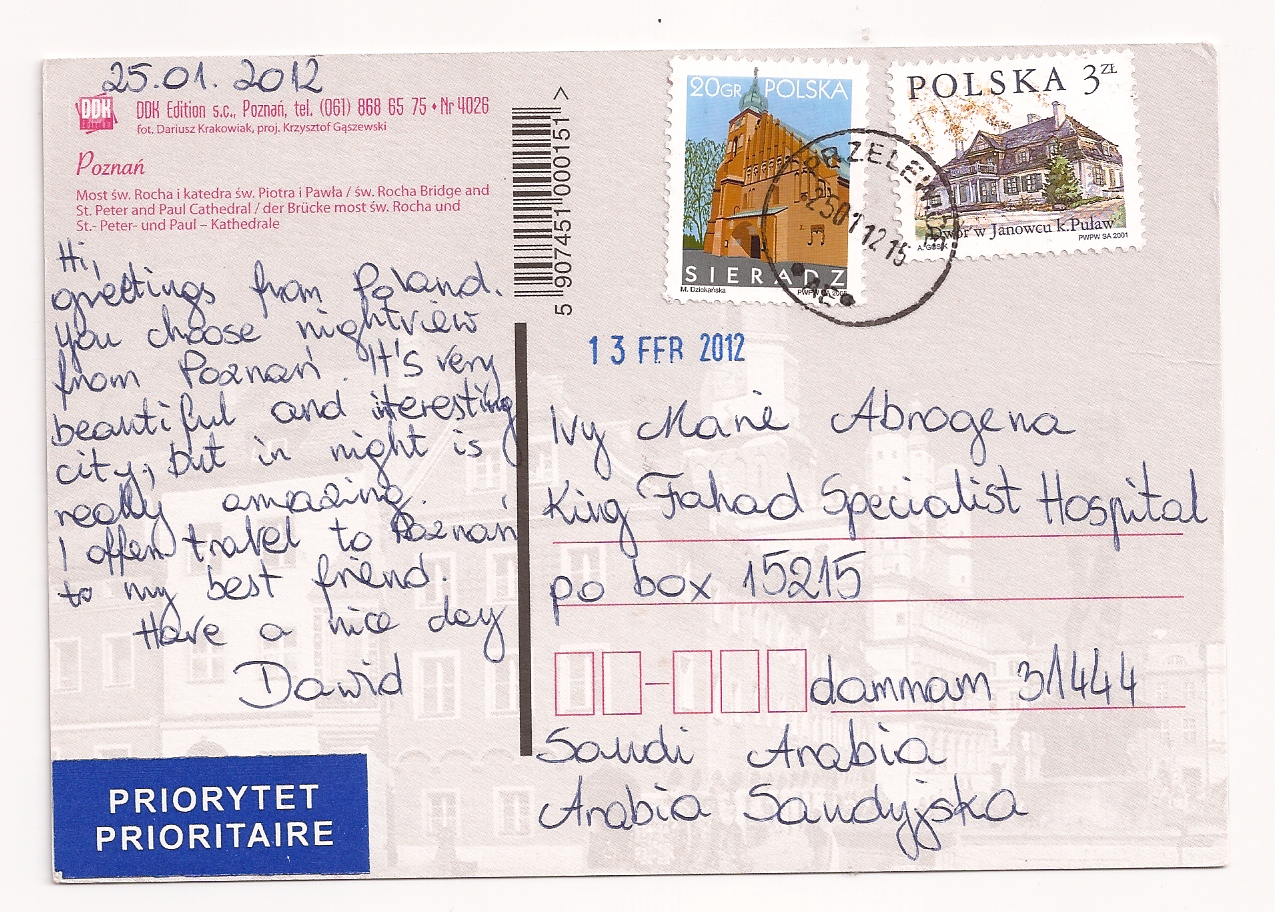 25.01.2012
DDK Edition s.c., Poznań, tel. (061) 868 65 75 • Nr 4026
fot. Dariusz Krakowiak, proj. Krzysztof Gąszewski
Poznań
Most św. Rocha i katedra św. Piotra i Pawła / św. Rocha Bridge and
St. Peter and Paul Cathedral / der Brücke most św. Rocha und
St.- Peter- und Paul – Kathedrale
Hi,
greetings from Poland.
you choose nightview
from Poznań. It's very
beautiful and interesting
city, but in night is
really amazing.
I offen travel to Poznań
to my best friend.
Have a nice day
Dawid
PRIORYTET
PRIORITAIRE
5 907451 000151 >
20GR POLSKA
SIERADZ
M. Dziekańska
POLSKA 3ZŁ
Dwór w Janowcu k.Puław
PWPW SA 2001
250112 15
13 FEB 2012
Ivy Marie Abrogena
King Fahad Specialist Hospital
po box 15215
dammam 31444
Saudi Arabia
Arabia Saudyjska